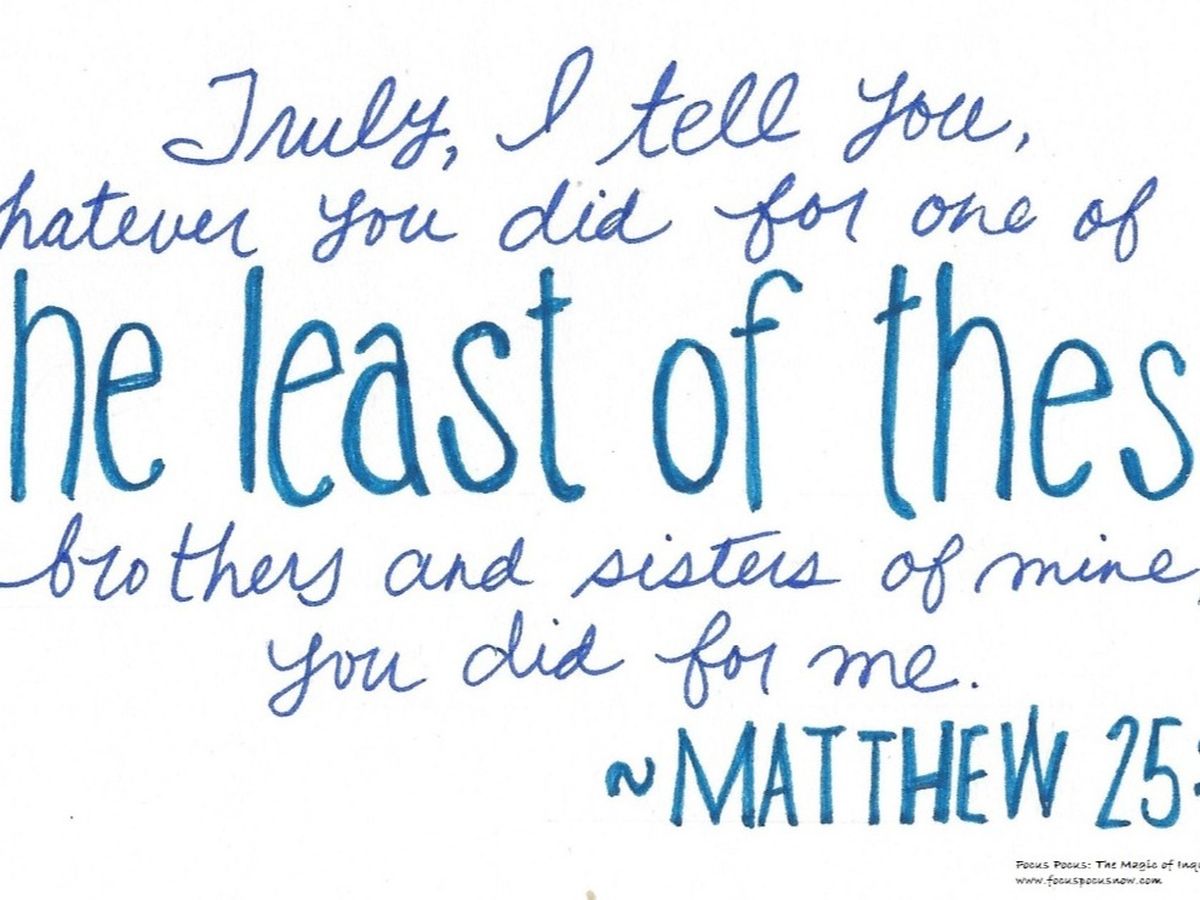 Truly, I tell you,
hatever you did for one of
he least of thes
brothers and sisters of mine,
you did for me.
~MATTHEW 25:
Focus Pocus: The Magic of Inqu
www.focuspocusnow.com